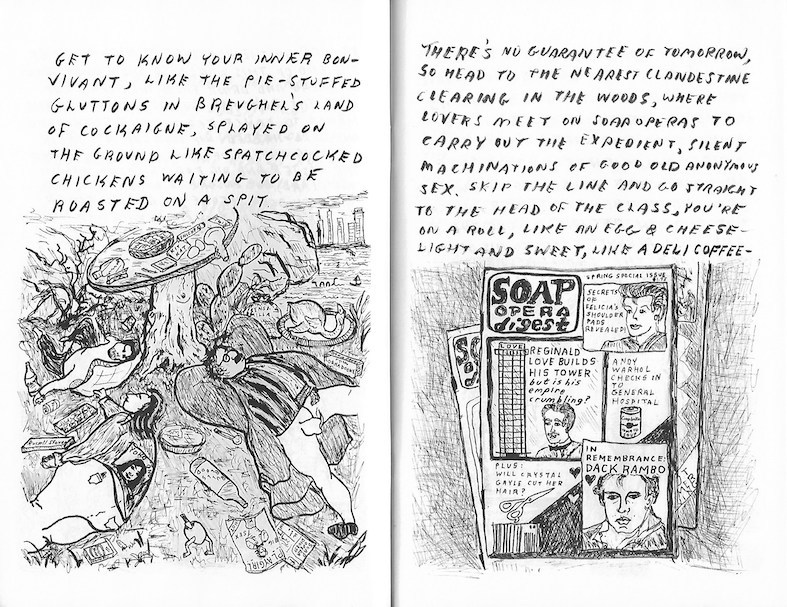 GET TO KNOW YOUR INNER BON-
VIVANT, LIKE THE PIE-STUFFED
GLUTTONS IN BREUGHEL'S LAND
OF COCKAIGNE, SPLAYED ON
THE GROUND LIKE SPATCHCOCKED
CHICKENS WAITING TO BE
ROASTED ON A SPIT
PLAYGIRL
THERE'S NO GUARANTEE OF TOMORROW,
SO HEAD TO THE NEAREST CLANDESTINE
CLEARING IN THE WOODS, WHERE
LOVERS MEET ON SOAP OPERAS TO
CARRY OUT THE EXPEDIENT, SILENT
MACHINATIONS OF GOOD OLD ANONYMOUS
SEX. SKIP THE LINE AND GO STRAIGHT
TO THE HEAD OF THE CLASS, YOU'RE
ON A ROLL, LIKE AN EGG & CHEESE-
LIGHT AND SWEET, LIKE A DELI COFFEE-
SPRING SPECIAL ISSUE
SOAP
OPERA
digest
SECRETS
OF
FELICIA'S
SHOULDER
PADS
REVEALED!
LOVE
REGINALD
LOVE BUILDS
HIS TOWER
but is his
empire
crumbling?
ANDY
WARHOL
CHECKS IN
TO
GENERAL
HOSPITAL
PLUS:
WILL CRYSTAL
GAYLE CUT HER
HAIR?
IN
REMEMBRANCE:
DACK RAMBO